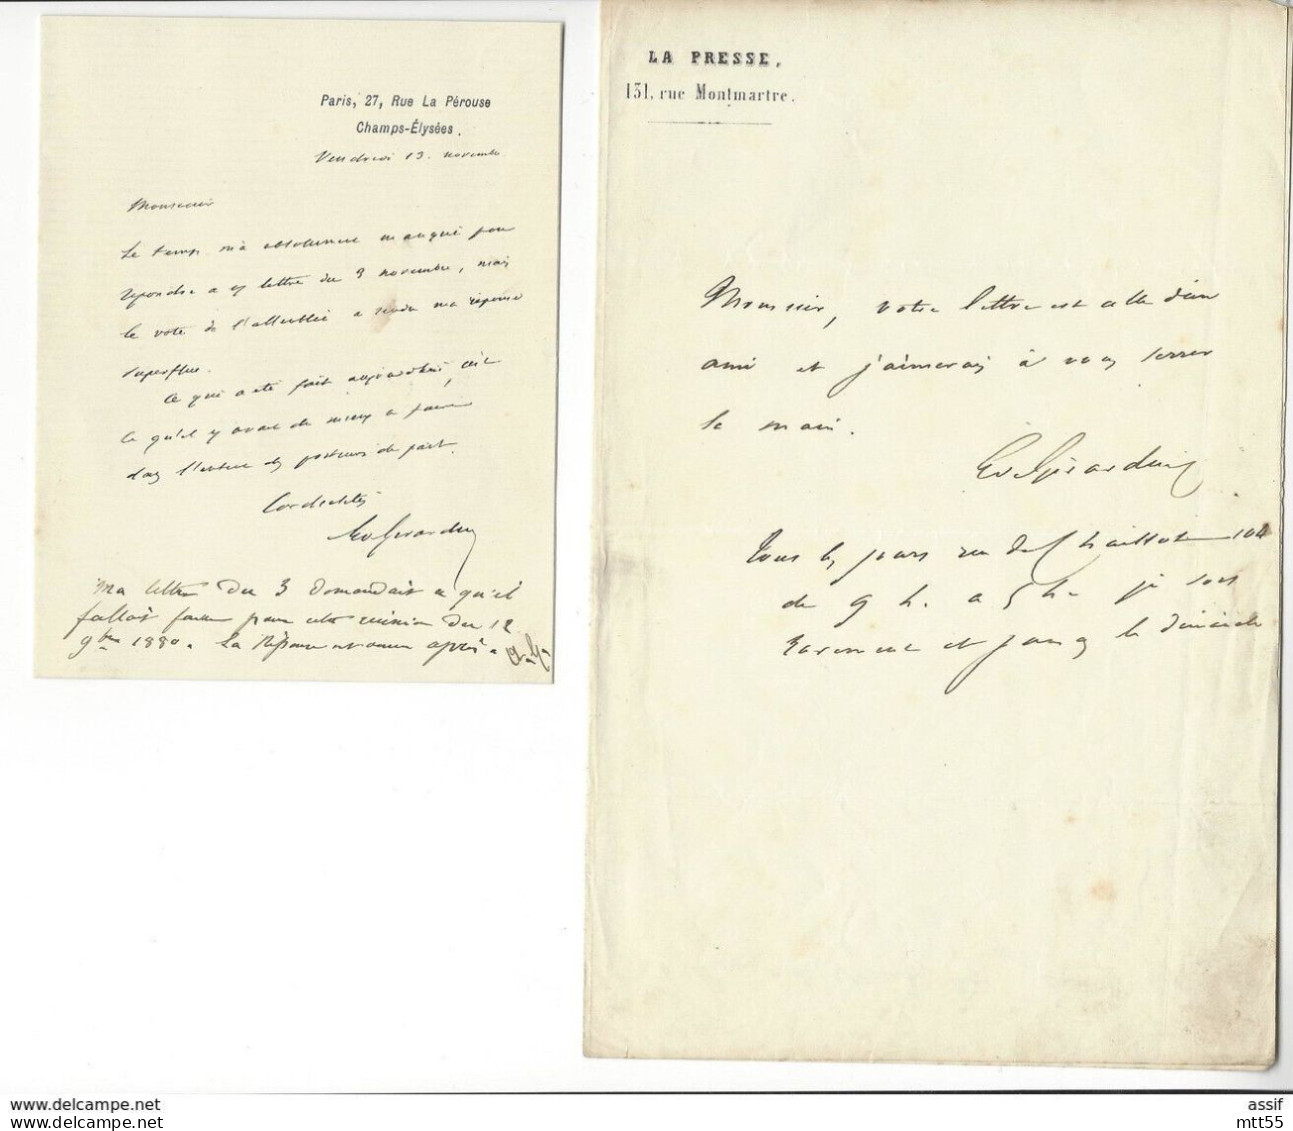 Paris, 27, Rue La Pérouse
Champs-Élysées.
Vendredi 13. novembre
Monsieur
Le temps m'a absolument manqué pour
répondre a lettre du 3 novembre, mais
le vote de l'assemblée a rendu ma réponse
superflue.
Ce qui a été fait aujourd'hui, est
ce qu'il y avait de mieux a faire
dans l'intérêt des porteurs de part.
Cordialités
E de Girardin
Ma lettre du 3 demandait ce qu'il
fallait faire pour cette réunion du 12
9bre 1880. La Réponse est venue après.
LA PRESSE,
131, rue Montmartre.
Monsieur, votre lettre est celle d'un
ami et j'aimerais à vous serrer
la main.
E de Girardin
Tous les jours rue de Chaillot 104
de 9 h. a 5 h. je sors
rarement et jamais le dimanche
assif
mtt55